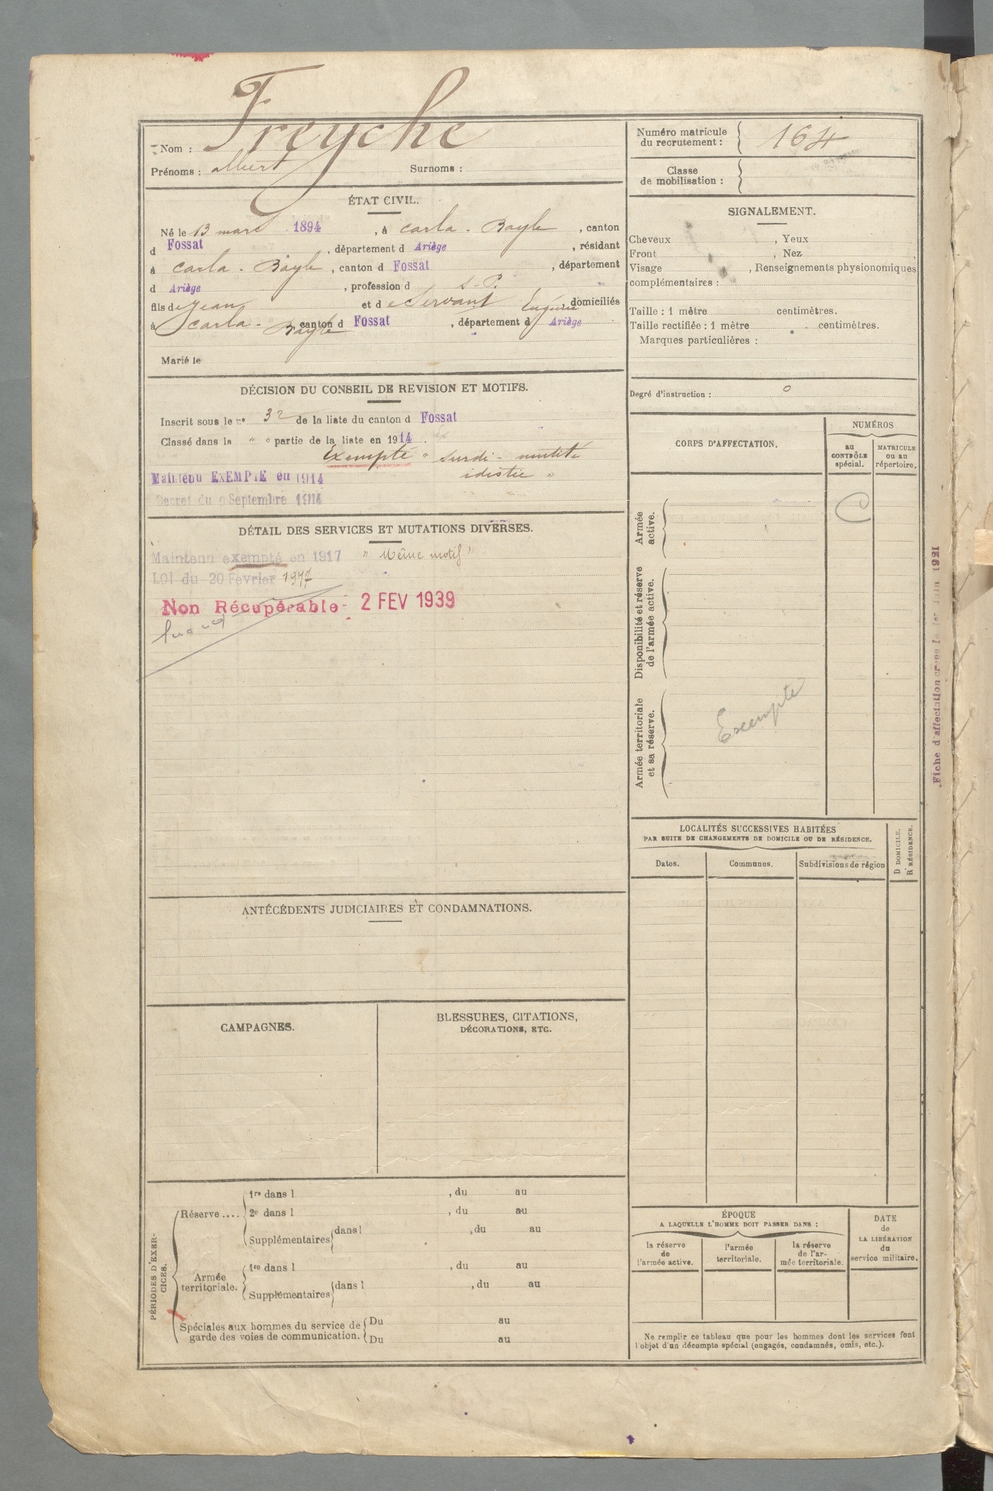 Nom : Freyche
Prénoms : Albert Surnoms :
ÉTAT CIVIL.
Né le 13 mars 1894, à Carla-Bayle, canton
d Fossat, département d Ariège, résidant
à Carla-Bayle, canton d Fossat, département
d Ariège, profession d s. P.
fils de Jean et de Servant Eugénie domiciliés
à Carla-Bayle canton d Fossat, département d Ariège
Marié le
DÉCISION DU CONSEIL DE REVISION ET MOTIFS.
Inscrit sous le no 32 de la liste du canton d Fossat
Classé dans la " " partie de la liste en 1914.
Exempté " surdi-mutité
idiotie "
Maintenu EXEMPTÉ en 1914
Décret du 9 Septembre 1914
DÉTAIL DES SERVICES ET MUTATIONS DIVERSES.
Maintenu exempté en 1917 " Même motif "
LOI du 20 Février 1917
Non Récupérable - 2 FEV 1939
ANTÉCÉDENTS JUDICIAIRES ET CONDAMNATIONS.
CAMPAGNES.
BLESSURES, CITATIONS,
DÉCORATIONS, ETC.
PÉRIODES D'EXER-
CICES.
Réserve....
1re dans l , du au
2e dans l , du au
Supplémentaires dans l , du au
Armée
territoriale.
1re dans l , du au
Supplémentaires dans l , du au
Spéciales aux hommes du service de
garde des voies de communication.
Du au
Du au
Numéro matricule
du recrutement : 164
Classe
de mobilisation :
SIGNALEMENT.
Cheveux , Yeux
Front , Nez ,
Visage , Renseignements physionomiques
complémentaires :
Taille : 1 mètre centimètres.
Taille rectifiée : 1 mètre centimètres.
Marques particulières :
Degré d'instruction : 0
CORPS D'AFFECTATION.
NUMÉROS
AU
CONTRÔLE
spécial.
MATRICULE
ou au
répertoire.
Armée
active.
Disponibilité et réserve
de l'armée active.
Armée territoriale
et sa réserve.
Exempté
LOCALITÉS SUCCESSIVES HABITÉES
PAR SUITE DE CHANGEMENTS DE DOMICILE OU DE RÉSIDENCE.
Dates.
Communes.
Subdivisions de région
D DOMICILE.
R RÉSIDENCE.
ÉPOQUE
A LAQUELLE L'HOMME DOIT PASSER DANS :
la réserve
de
l'armée active.
l'armée
territoriale.
la réserve
de l'ar-
mée territoriale.
DATE
de
LA LIBÉRATION
du
service militaire.
Ne remplir ce tableau que pour les hommes dont les services font
l'objet d'un décompte spécial (engagés, condamnés, omis, etc.).
Fiche d'affectation 1921